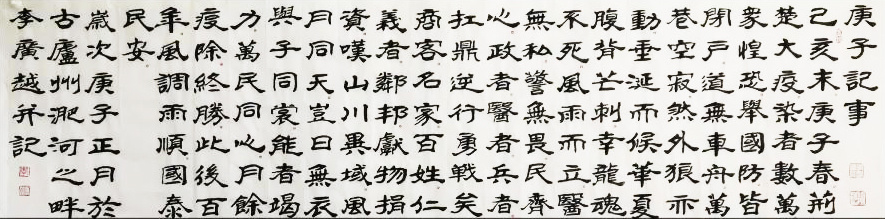 庚子記事
己亥末庚子春荊
楚大疫染者數萬
衆惶恐舉國防皆
閉戶道無車舟萬
巷空寂然外狼亦
動垂涎而候華夏
腹背芒刺幸龍魂
不死風雨而立醫
無私警無畏民齊
心政者醫者兵者
扛鼎逆行勇戰矣
商客名家百姓仁
義者鄰邦獻物捐
資嘆山川異域風
月同天豈曰無衣
與子同裳能者竭
力萬民同心月餘
疫除終勝此後百
年風調雨順國泰
民安
歲次庚子正月於
古廬州淝河之畔
李廣越并記